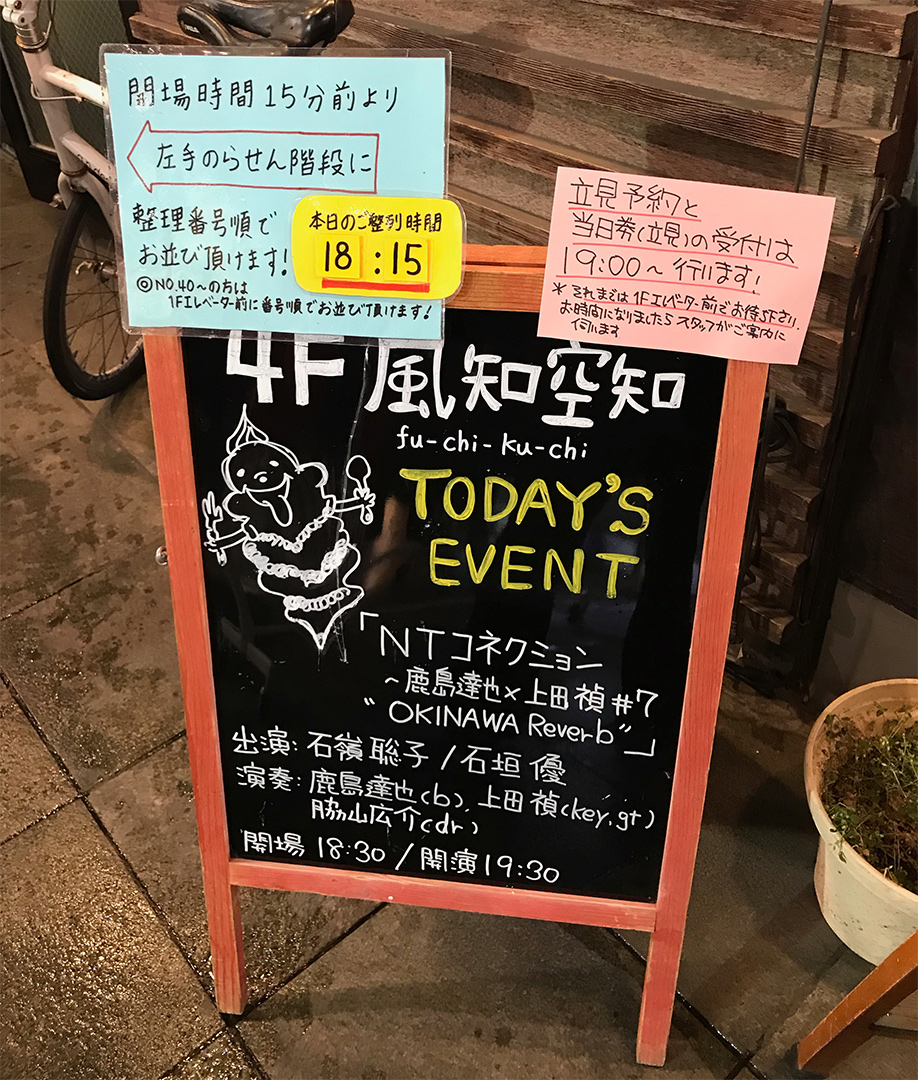 開場時間15分前より
左手のらせん階段に
整理番号順で
お並び頂けます!
◎NO.40～の方は
1Fエレベーター前に番号順でお並び頂けます!
本日のご整列時間
18:15
立見予約と
当日券(立見)の受付は
19:00～行います!
*それまでは1Fエレベーター前でお待ち下さい。
お時間になりましたらスタッフがご案内に
伺います
4F 風知空知
fu-chi-ku-chi
TODAY'S
EVENT
「NTコネクション
～鹿島達也×上田禎#7
"OKINAWA Reverb"」
出演:石嶺聡子/石垣優
演奏:鹿島達也(b)、上田禎(key,gt)
脇山広介(dr)
開場18:30/開演19:30